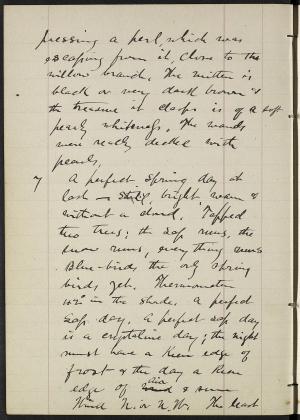 pressing a perl, which was
escaping from it, close to the
willow branch. The mitten is
black or very dark brown &
the treasure it clasps is of a soft
pearly whiteness. The wands
were really decked with
pearls.
7 A perfect Spring day at
last – still, bright, warm &
without a cloud. Tapped
two trees; the sap runs, the
snow runs, every thing runs
Blue-birds the only spring
birds, yet. Thermometer
in the shade. A perfect
sap day. A perfect sap day
is a crystaline day; the night
must have a keen edge of
frost & the day a keen
edge of air & sun
Wind N. or N.W. The least